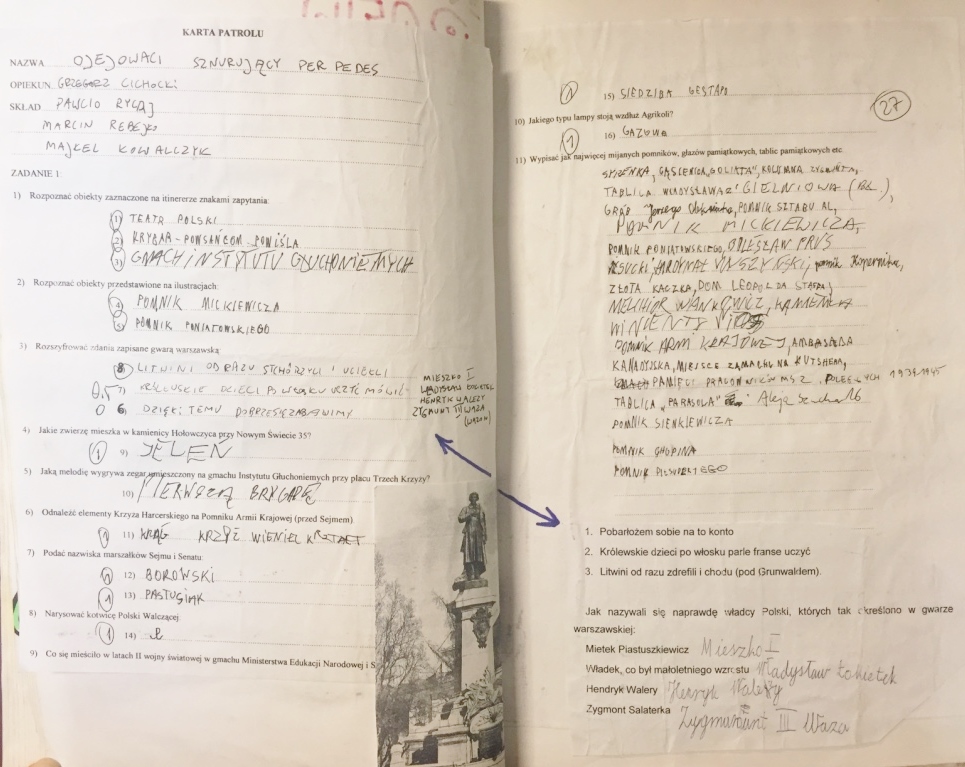 KARTA PATROLU
NAZWA OJEJOWACI SZNURUJĄCY PER PEDES
OPIEKUN GRZEGORZ CICHOCKI
SKŁAD PAWCIO RYCAJ
MARCIN REBEJKO
MAJKEL KOWALCZYK
ZADANIE 1:
1) Rozpoznać obiekty zaznaczone na itinererze znakami zapytania:
1) TEATR POLSKI
2) KRYBAR - POWSAŃCOM POWIŚLA
3) GMACH INSTYTUTU GŁUCHONIEMYCH
2) Rozpoznać obiekty przedstawione na ilustracjach:
4) POMNIK MICKIEWICZA
5) POMNIK PONIATOWSKIEGO
3) Rozszyfrować zdania zapisane gwarą warszawską:
8) LITWINI OD RAZU STCHÓRZYLI I UCIEKLI
0,5 7) KRÓLEWSKIE DZIECI PO WŁOSKU UCZYĆ MÓWIĆ
0 6) DZIĘKI TEMU DOBRZE SIĘ ZABAWIMY
MIESZKO I
WŁADYSŁAW ŁOKIETEK
HENRYK WALEZY
ZYGMUNT III WAZA
(WAZON)
4) Jakie zwierzę mieszka w kamienicy Hołowczyca przy Nowym Świecie 35?
1 9) JELEŃ
5) Jaką melodię wygrywa zegar umieszczony na gmachu Instytutu Głuchoniemych przy placu Trzech Krzyży?
10) PIERWSZĄ BRYGADĘ
6) Odnaleźć elementy Krzyża Harcerskiego na Pomniku Armii Krajowej (przed Sejmem)
1 11) KRĄG KRZYŻ WIENIEC KSZTAŁT
7) Podać nazwiska marszałków Sejmu i Senatu:
1 12) BOROWSKI
1 13) PASTUSIAK
8) Narysować kotwicę Polski Walczącej
1 14)
9) Co się mieściło w latach II wojny światowej w gmachu Ministerstwa Edukacji Narodowej i S
1 15) SIEDZIBA GESTAPO
27
10) Jakiego typu lampy stoją wzdłuż Agrikoli?
1 16) GAZOWE
11) Wypisać jak najwięcej mijanych pomników, głazów pamiątkowych, tablic pamiątkowych etc.
SYRENKA, GĄSIENICA „GOLIATA", KOLUMNA ZYGMUNTA,
TABLICA WŁADYSŁAWA GIELNIOWA
GRÓB Jerzego, POMNIK SZTABU AL,
POMNIK MICKIEWICZA,
POMNIK PONIATOWSKIEGO, BOLESŁAW PRUS
KARDYNAŁ WYSZYŃSKI, pomnik Kopernika,
ZŁOTA KACZKA, DOM LEOPOLDA STAFFA,
MELCHIOR WAŃKOWICZ, KAMIENICA
POMNIK ARMI KRAJOWEJ, AMBASADA
KANADYJSKA, MIEJSCE ZAMACHU NA KUTSHERA,
PAMIĘCI PRACOWNIKÓW MSZ POLEGŁYCH 1939-1945
TABLICA „PARASOLA" Aleja Szucha 16
POMNIK SIENKIEWICZA
POMNIK CHOPINA
POMNIK PIŁSUDSKIEGO
1. Pobarłożem sobie na to konto
2. Królewskie dzieci po włosku parle franse uczyć
3. Litwini od razu zdrefili i chodu (pod Grunwaldem).
Jak nazywali się naprawdę władcy Polski, których tak określono w gwarze
warszawskiej:
Mietek Piastuszkiewicz Mieszko I
Władek, co był małoletniego wzrostu Władysław Łokietek
Hendryk Walery Henryk Walezy
Zygmont Salaterka Zygmunt III Waza